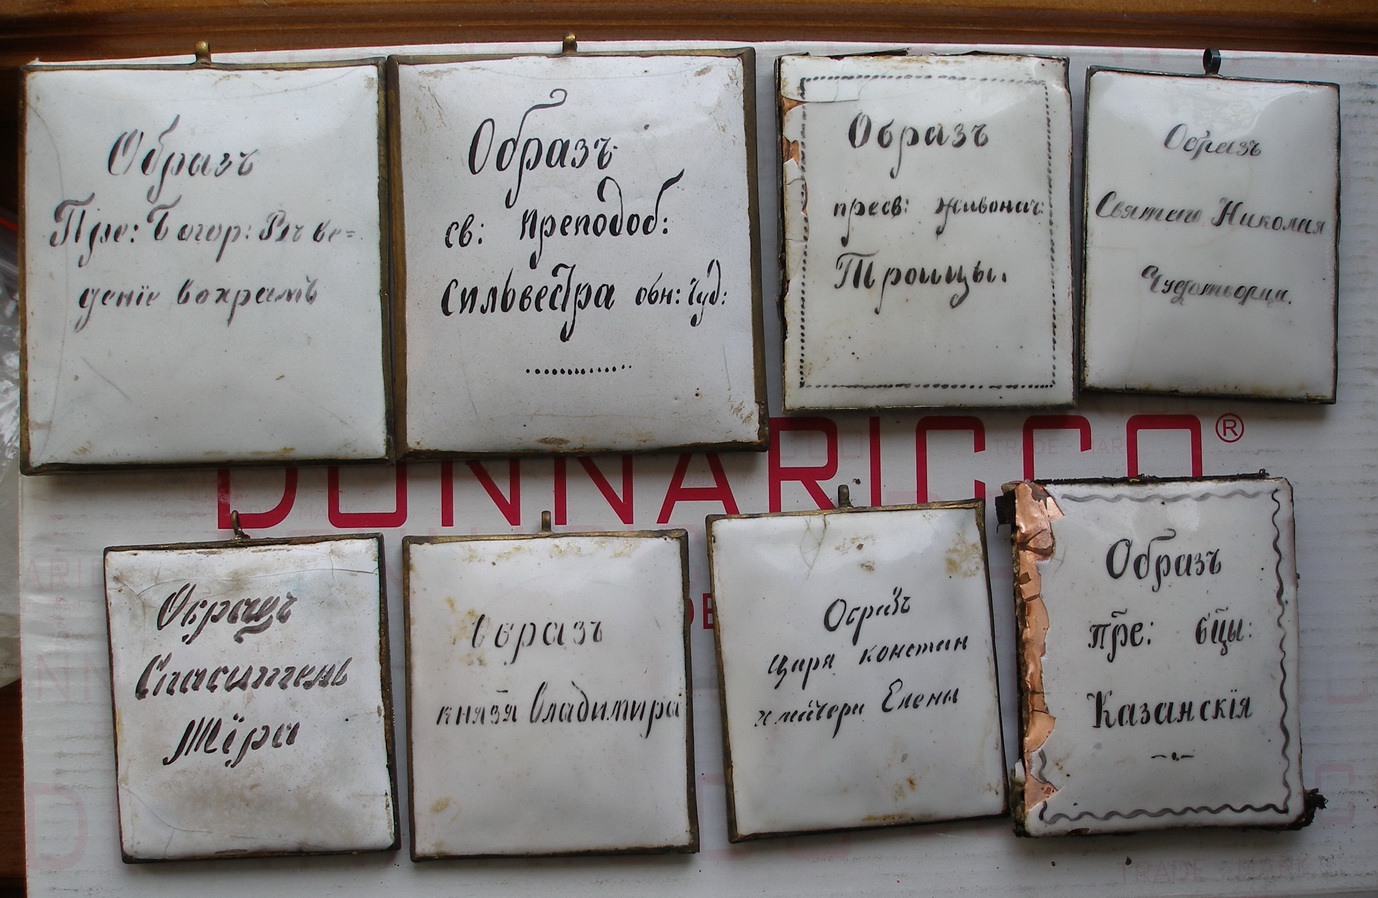 Образъ
Пре: Богор: Въ ве=
деніе вохрамъ
Образъ
св: преподоб:
Сильвестра обн: Чуд:
Образъ
пресв: живонач:
Троицы.
Образъ
Святаго Николая
Чудотворца.
DONNARICCO®
Образъ
Спаситель
Міра
Образъ
князя Владимира
Образъ
Царя констан
и матери Елены
Образъ
пре: бцы:
Казанскія